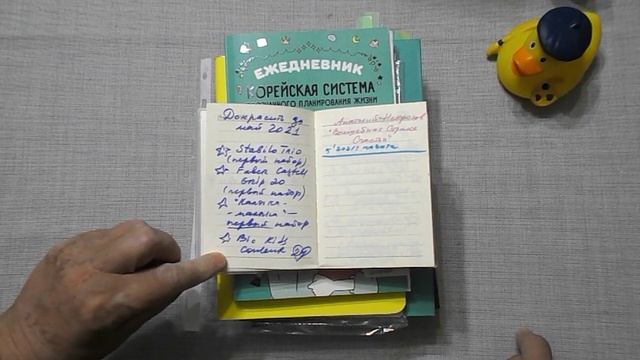 ЕЖЕДНЕВНИК
КОРЕЙСКАЯ СИСТЕМА
ПЛАНИРОВАНИЯ ЖИЗНИ
Докрасить до
май 2021
Stabilo Trio
(первый набор)
Faber Castell
Grip 20
(первый набор)
"Каляка-
-маляка" –
первый набор
Bic Kids
Анатолий Некрасов